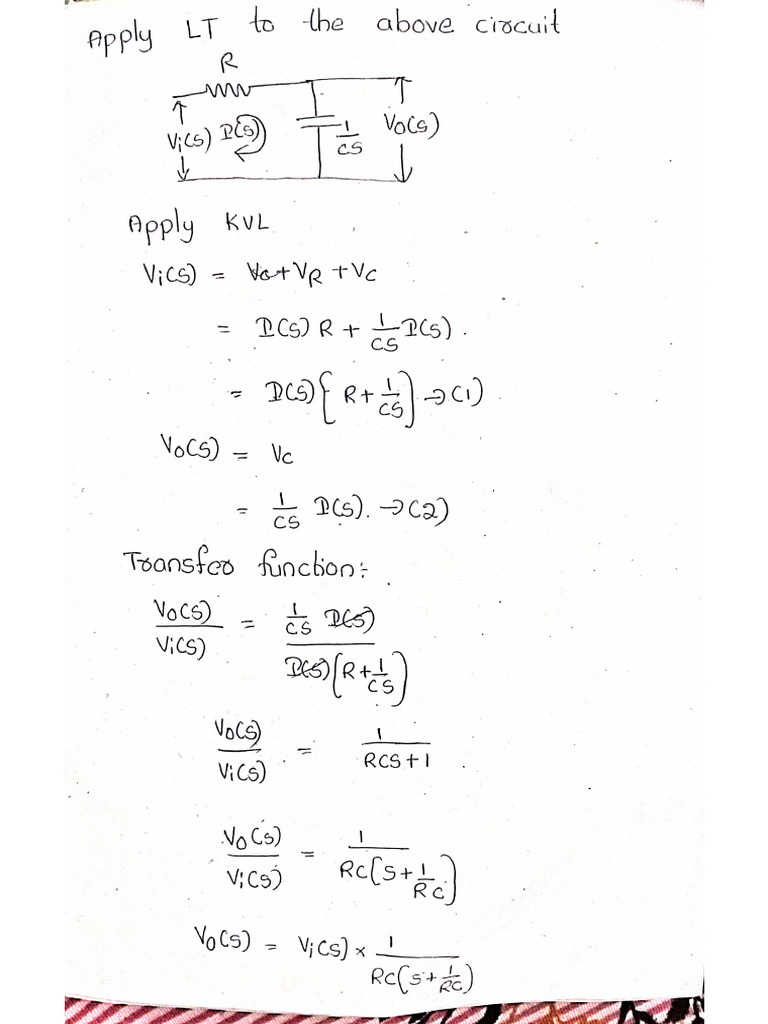 Apply LT to the above circuit
R
Vi(s) I(s) 1/CS Vo(s)
Apply KVL
Vi(s) = VR + VC
= I(s) R + 1/CS I(s).
= I(s) { R + 1/CS ] → (1)
Vo(s) = VC
= 1/CS I(s). → (2)
Transfer function:-
Vo(s)/Vi(s) = 1/CS I(s) / I(s) [R + 1/CS]
Vo(s)/Vi(s) = 1/RCS+1
Vo(s)/Vi(s) = 1/RC[S + 1/RC]
Vo(s) = Vi(s) × 1/RC(S + 1/RC)